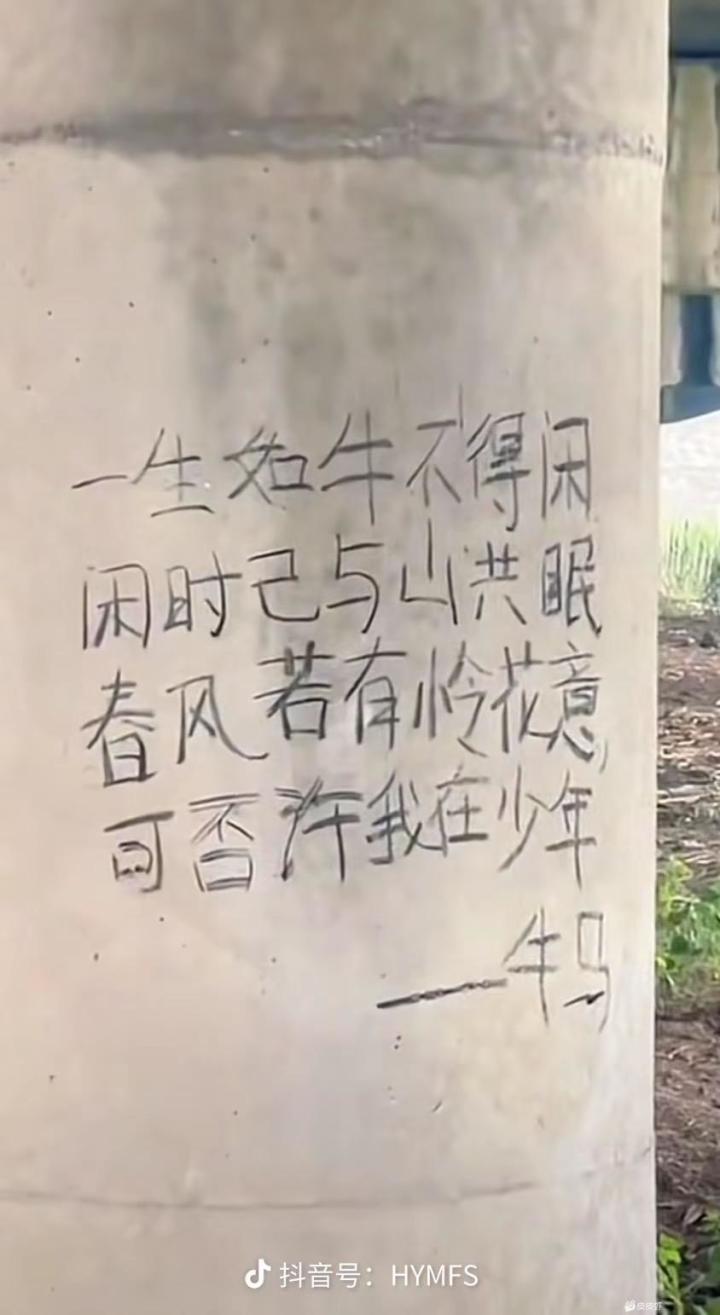 一生如牛不得闲
闲时已与山共眠
春风若有怜花意
可否许我在少年
——牛马
抖音号：HYMFS
皮皮虾